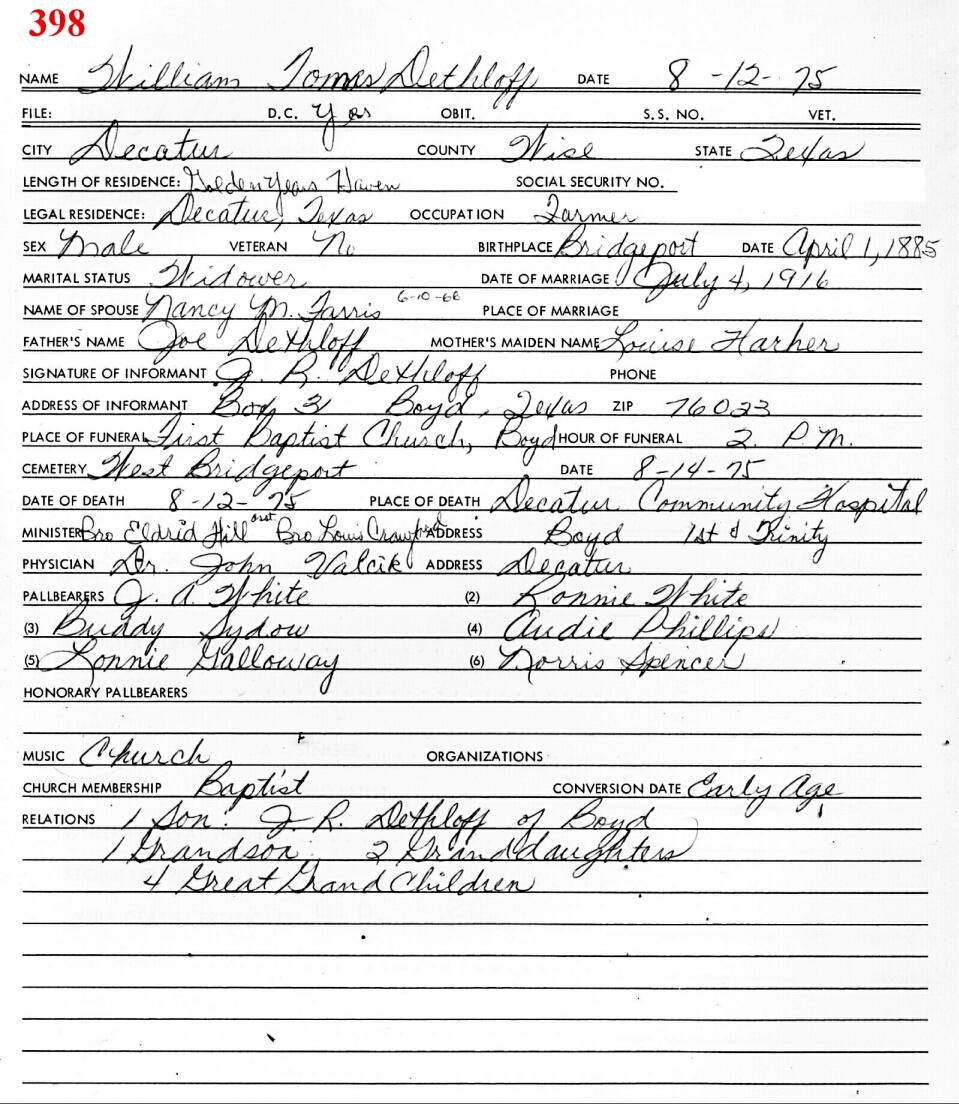 398
NAME William Tomas Dethloff DATE 8-12-75
FILE: D.C. Yes OBIT. S.S. NO. VET.
CITY Decatur COUNTY Wise STATE Texas
LENGTH OF RESIDENCE: Golden Years Haven SOCIAL SECURITY NO.
LEGAL RESIDENCE: Decatur, Texas OCCUPATION Farmer
SEX Male VETERAN No BIRTHPLACE Bridgeport DATE April 1, 1885
MARITAL STATUS Widower DATE OF MARRIAGE July 4, 1916
NAME OF SPOUSE Nancy M. Farris 6-10-66 PLACE OF MARRIAGE
FATHER'S NAME Joe Dethloff MOTHER'S MAIDEN NAME Louise Harher
SIGNATURE OF INFORMANT J. R. Dethloff PHONE
ADDRESS OF INFORMANT Box 31 Boyd, Texas ZIP 76023
PLACE OF FUNERAL First Baptist Church, Boyd HOUR OF FUNERAL 2 P.M.
CEMETERY West Bridgeport DATE 8-14-75
DATE OF DEATH 8-12-75 PLACE OF DEATH Decatur Community Hospital
MINISTER Bro Eldrid Hill Bro Louis Crawford ADDRESS Boyd 1st & Trinity
PHYSICIAN Dr. John Valcik ADDRESS Decatur
PALLBEARERS J. A. White (2) Ronnie White
(3) Buddy Sydow (4) Audie Phillips
(5) Lonnie Galloway (6) Norris Spencer
HONORARY PALLBEARERS
MUSIC Church ORGANIZATIONS
CHURCH MEMBERSHIP Baptist CONVERSION DATE Early Age
RELATIONS 1 Son: J. R. Dethloff of Boyd
1 Grandson 2 Granddaughters
4 Great Grand Children